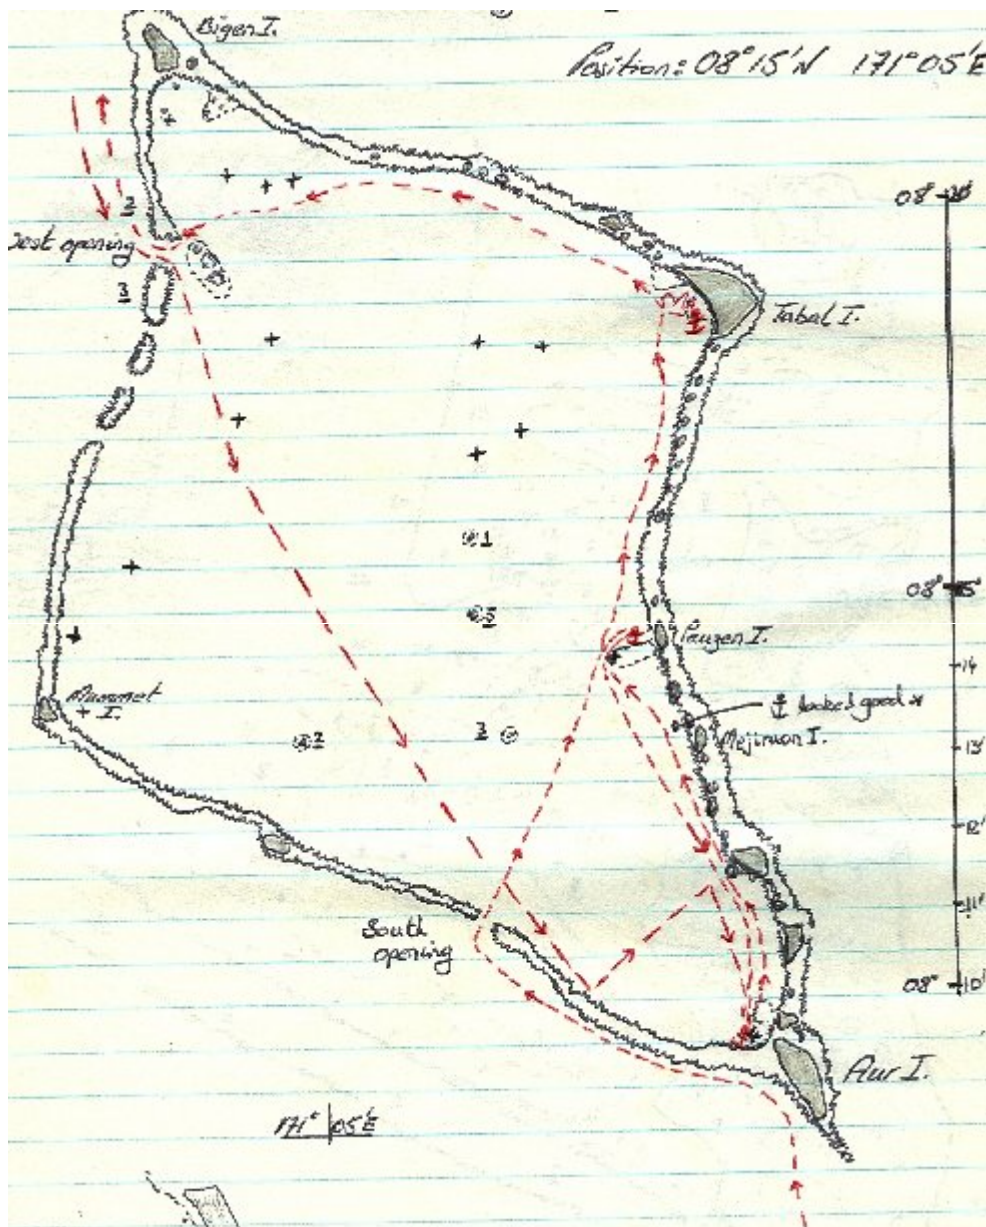 Bigen I.
Position: 08° 15'N 171° 05'E
08° 20'
2
West opening
3
Tabal I.
1
08° 15'
5
Pauzen I.
14
Mummet
I.
⚓ looked good *
2
3
Mejirwon I.
13'
12'
11'
South
opening
08° 10'
Aur I.
171° 05'E